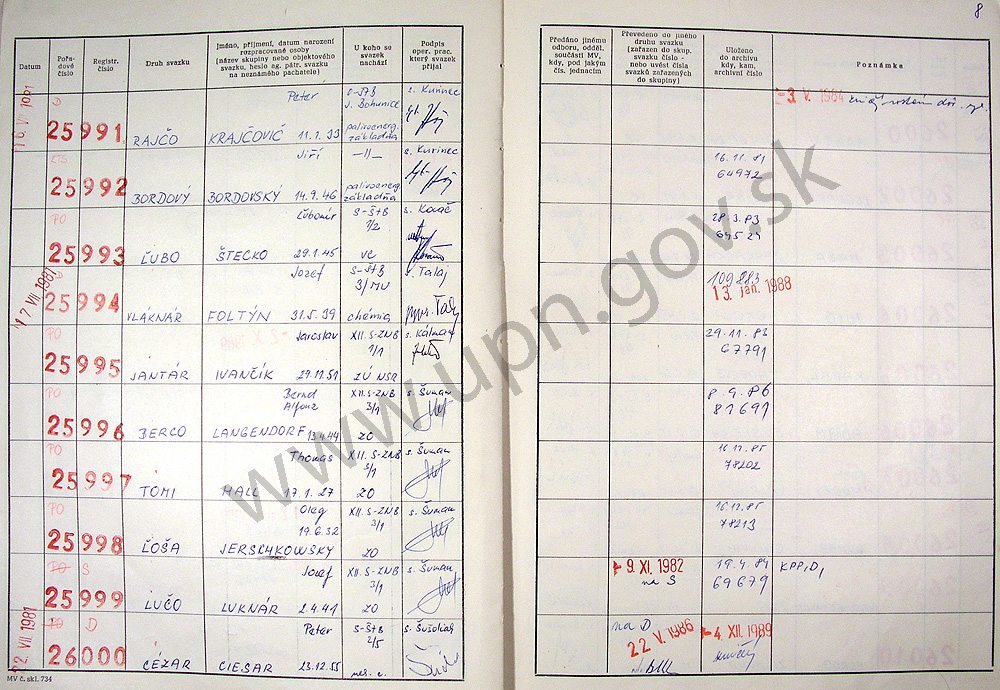 8
Datum
Pořadové číslo
Registr. číslo
Druh svazku
Jméno, příjmení, datum narození rozpracované osoby (název skupiny nebo objektového svazku, heslo ag. pátr. svazku na neznámého pachatele)
U koho se svazek nachází
Podpis oper. prac. který svazek přijal
Předáno jinému odboru, odděl. součásti MV, kdy, pod jakým čís. jednacím
Převedeno do jiného druhu svazku (zařazen do skup. svazku číslo - nebo uvést čísla svazků zařazených do skupiny)
Uloženo do archivu kdy, kam, archivní číslo
Poznámka
Peter
J. Bohunice
s. Kurinec
3. V. 1984
25991
RAJČO
KRAJČOVIČ 11.1.33
palivoenerg. základňa
KTS
Jiří
—11—
s. Kurinec
16.11.81
25992
BORDOVÝ
BORDOVSKÝ 14.9.46
palivoenerg. základňa
64972
PO
Ľubomír
S-ŠtB
s. Kováč
28.3.83
7/2
25993
ĽUBO
ŠTECKO 29.1.45
VC
17 VII 1981
Jozef
S-ŠtB
s. Talaj
109883
3/MV
13. jan. 1988
25994
VLAKNÁR
FOLTÝN 31.5.39
chémia
PO
Jaroslav
XII. S-ZNB
29.11.83
1/1
67791
25995
JANTÁR
IVANČÍK 29.12.51
ZÚ NSR
PO
Bernd Alfonz
XII. S-ZNB
s. Šuman
8.9.86
3/1
81691
25996
BERCO
LANGENDORF 13.4.44
ZO
PO
Thomas
XII. S-ZNB
s. Šuman
16.12.85
78202
25997
TOMI
HALL 17.1.27
ZO
PO
Oleg
XII. S-ZNB
s. Šuman
16.12.85
19.6.32
3/1
78213
25998
ĽOŠA
JERSCHKOWSKY
ZO
PO S
Jozef
XII. S-ZNB
s. Šuman
9. XI. 1982
19.4.84
KPP, D,
3/1
na S
69679
25999
LUČO
LUKNÁR 2.4.41
ZO
22. VII 1981
PO D
Peter
S-ŠtB
s. Šušoliak
na D
2/5
22 V. 1986
4. XII. 1989
26000
CÉZAR
CIESAR 23.12.55
MV č. skl. 734
www.upn.gov.sk